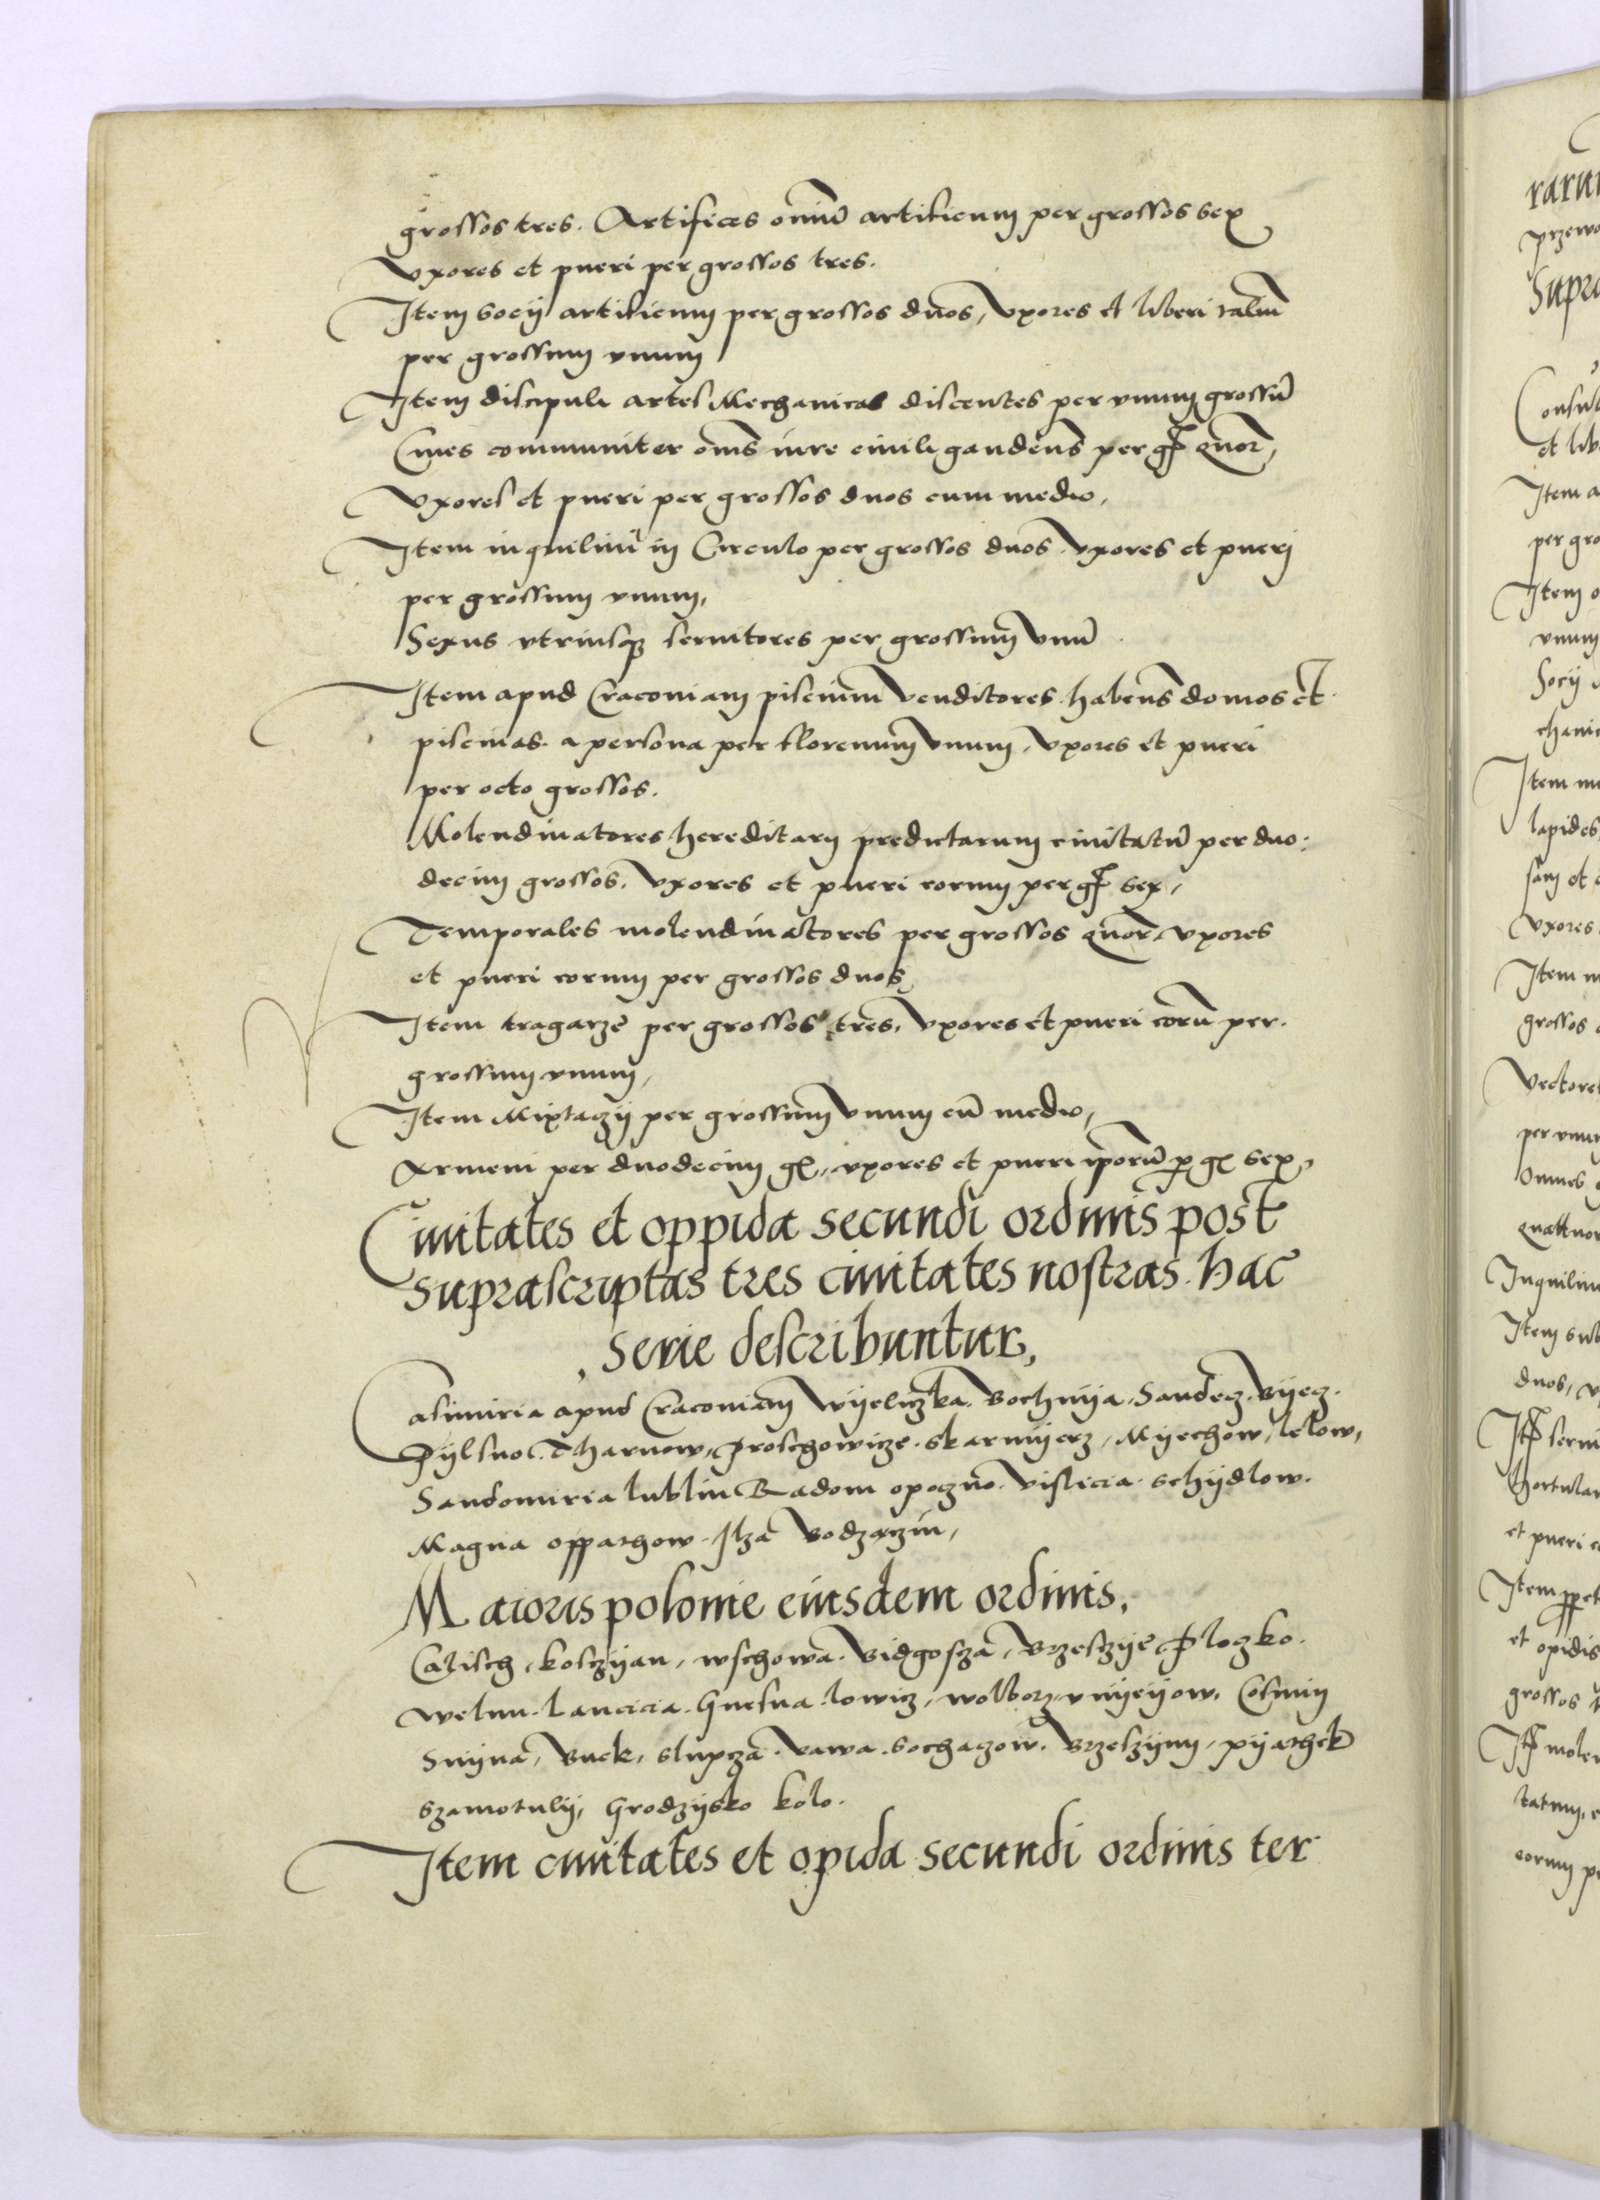 grossos tres. Artifices omniū artificium per grossos sex
Vxores et pueri per grossos tres.
Item socij artificum per grossos duos, Vxores et liberi taliū
per grossum vnum
Item discipuli artes Mechanicas discentes per vnum grossū
Ciues communiter om̄s iure ciuili gauden̄s per gſ quor,
Vxores et pueri per grossos duos cum medio,
Item inquilini in Circulo per grossos duos Vxores et pueri
per grossum vnum,
Sexus vtriusq; seruitores per grossum Vnū
Item apud Cracouiam piscium Venditores. haben̄s domos et
piscinas. a persona per florenum Vnum, Vxores et pueri
per octo grossos.
Molendinatores hereditarij predictarum ciuitatū per duo:
decim grossos. Vxores et pueri eorum per gſ sex,
Temporales molendinatores per grossos quor, Vxores
et pueri eorum per grossos duos,
Item tragarze per grossos tres, Vxores et pueri eorū per
grossum vnum,
Item Mixtaczij per grossum Vnum cū medio,
Armeni per duodecim gſ, vxores et pueri ipsorū p gſ sex,
Ciuitates et oppida secundi ordinis post
suprascriptas tres ciuitates nostras. hac
serie describuntur,
Casimiria apud Cracouiam Wyeliczka. Bochnija. Sandecz. Byecz.
Pylsno. Tharnow, Proschowicze. Skarmijerz, Myechow, lelow,
Sandomiria lublin Radom opoczno. Vislicia. Schijdlow.
Magna oppathow. Ilza Bodzaczin,
Maioris polonie eiusdem ordinis,
Calisch, Kosczijan, wschowa. Bidgoscza, Brzesczije Ploczko.
Welun. Lancicia. Gnesna. lowicz, wolborz, vnijeijow. Cosmin
Snijna, Buek, slupcza. rawa. sochaczow. Brzeszijnij, pijathek
szamotulij, Grodzijsko kolo.
Item ciuitates et opida secundi ordinis ter